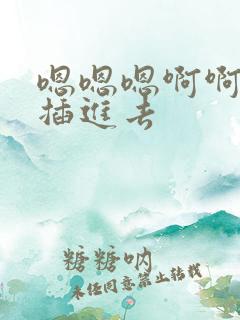 嗯嗯嗯啊啊
插进去
糖糖呐
未经同意禁止转载